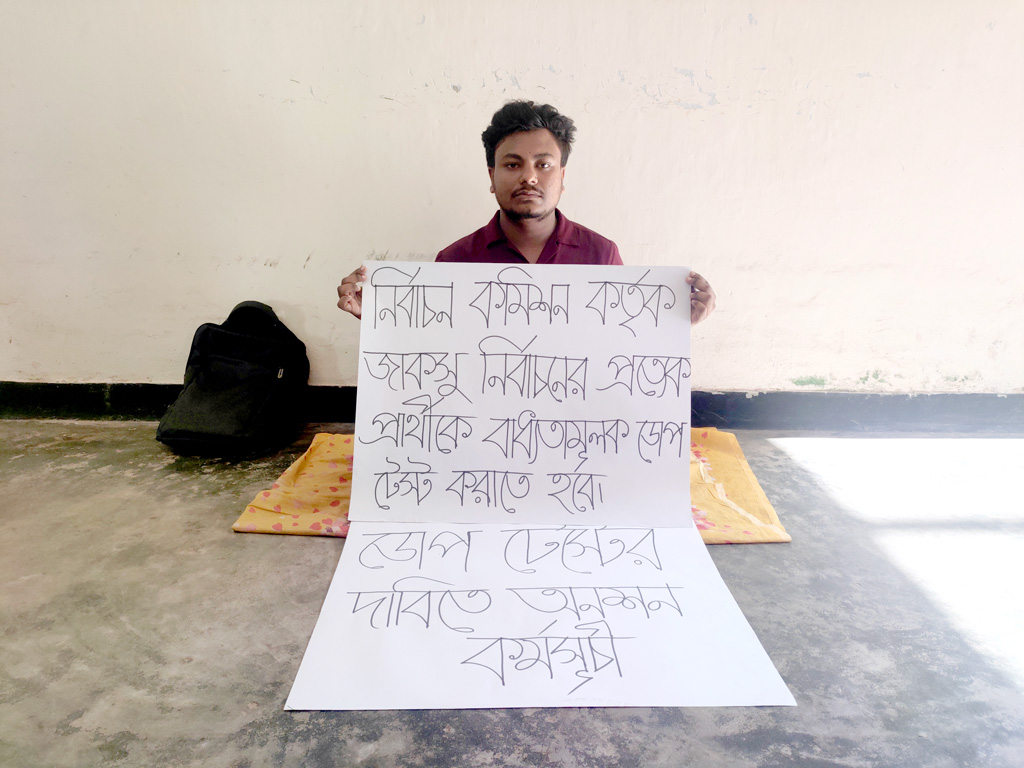 নির্বাচন কমিশন কর্তৃক
জাকসু নির্বাচনের প্রত্যেক
প্রার্থীকে বাধ্যতামূলক ডোপ
টেস্ট করাতে হবে।
ডোপ টেস্টের
দাবিতে অনশন
কর্মসূচী